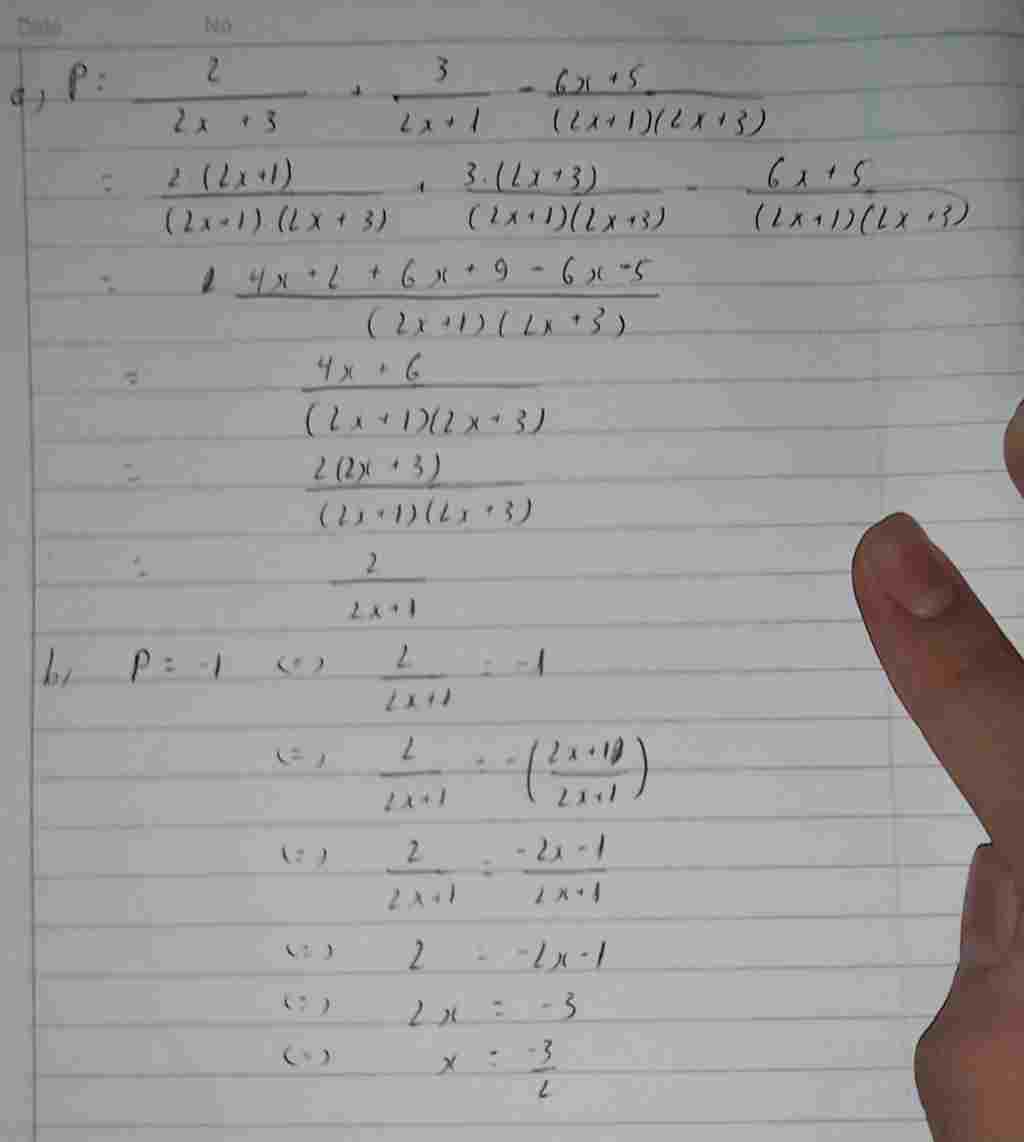 Date No
a, P = \frac{2}{2x + 3} + \frac{3}{2x + 1} - \frac{6x + 5}{(2x+1)(2x+3)}
= \frac{2(2x+1)}{(2x+1)(2x+3)} + \frac{3.(2x+3)}{(2x+1)(2x+3)} - \frac{6x+5}{(2x+1)(2x+3)}
= \frac{4x + 2 + 6x + 9 - 6x - 5}{(2x+1)(2x+3)}
= \frac{4x + 6}{(2x+1)(2x+3)}
= \frac{2(2x+3)}{(2x+1)(2x+3)}
= \frac{2}{2x+1}
b, P = -1 (=) \frac{2}{2x+1} = -1
(=) \frac{2}{2x+1} = -(\frac{2x+1}{2x+1})
(=) \frac{2}{2x+1} = \frac{-2x-1}{2x+1}
(=) 2 = -2x-1
(=) 2x = -3
(=) x = \frac{-3}{2}